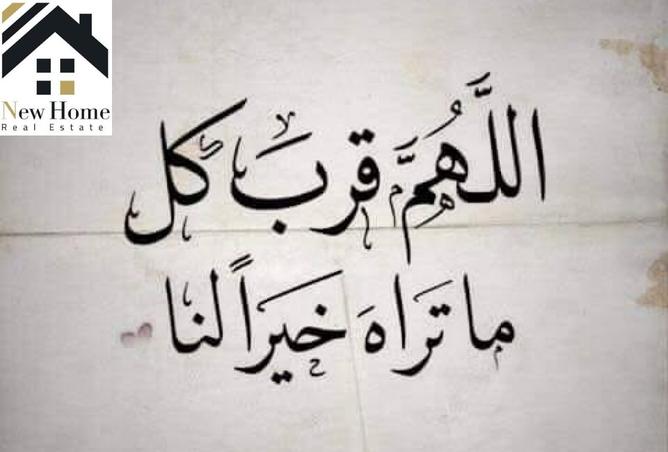 New Home
Real Estate
اللَّهُمَّ قربَ كل
ما تَراهَ خيراً لنا